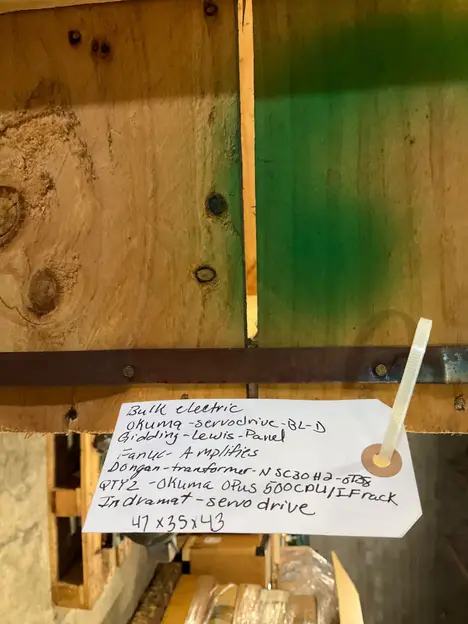 Bulk electric
Okuma-servodrive-BL-D
Gidding-Lewis-Panel
Fanuc-Amplifies
Dongan-transformer-NSC30H2-
QTY2-Okuma Opus 500CPU/IFrack
Indramat-servodrive
47x35x43